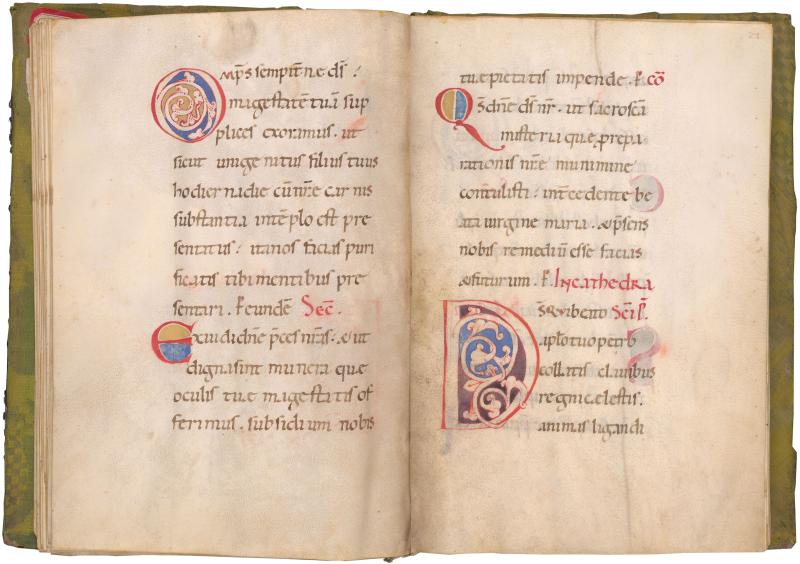 Omp̄s sempitn̄e ds̄ :
magestatē tuā sup
plices exorimus. ut
sicut unigenitus filius tuus
hodierna die cū nr̄e carnis
substantia in tēplo est pre
sentatus : ita nos facias puri
ficatis tibi mentibus pre
sentari. P eundē Secr̄.
Exaudi dn̄e p̄ces nr̄as. & ut
digna sint munera que
oculis tue magestatis of
ferimus. subsidium nobis
tue pietatis impende. P cō
Qs̄ dn̄e ds̄ nr̄. ut sacrosc̄a
misteria que p̱ repa
rationis nr̄e munimine
contulisti : intcedente be
ata uirgine maria. & p̄sens
nobis remediū esse facias
& futurum. P In cathedra
Ds̄ qui beato Sc̄i P̄.
aplo tuo petro
collatis clauibus
regni celestis.
animas ligandi